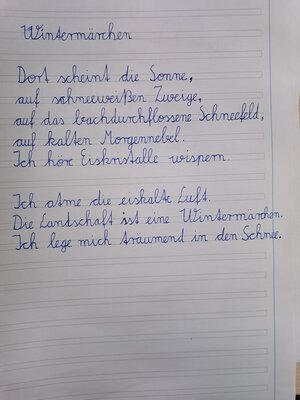 Wintermärchen
Dort scheint die Sonne,
auf schneeweißen Zweige,
auf das bachdurchflossene Schneefeld,
auf kalten Morgennebel.
Ich höre Eisknstalle wispern.
Ich atme die eiskalte Luft.
Die Landschaft ist eine Wintermärchen.
Ich lege mich träumend in den Schnee.